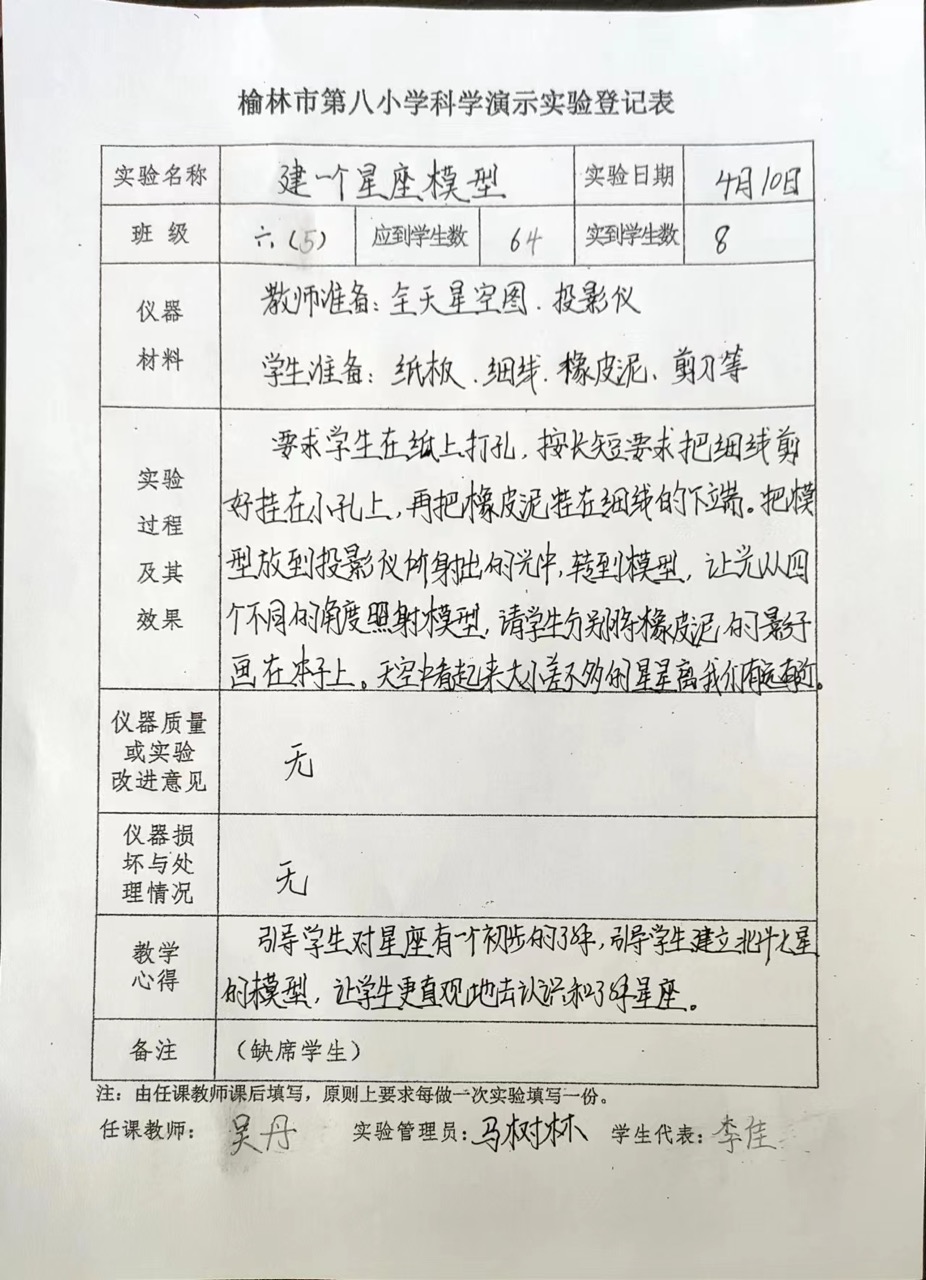 榆林市第八小学科学演示实验登记表
实验名称 建一个星座模型 实验日期 4月10日
班 级 六(5) 应到学生数 64 实到学生数 8
仪器 教师准备:全天星空图.投影仪
材料 学生准备:纸板.细线.橡皮泥、剪刀等
要求学生在纸上打孔,按长短要求把细线剪
实验 好挂在小孔上,再把橡皮泥挂在细线的下端。把模
过程
及其 型放到投影仪所射出的光中,转到模型,让光从四
效果 个不同的角度照射模型,请学生分别将橡皮泥的影子
画在本子上。天空中看起来大小差不多的星星离我们有远有近。
仪器质量
或实验 无
改进意见
仪器损
坏与处 无
理情况
教学 引导学生对星座有一个初步的了解,引导学生建立北斗七星
心得 的模型,让学生更直观地去认识和了解星座。
备注 (缺席学生)
注:由任课教师课后填写,原则上要求每做一次实验填写一份。
任课教师: 吴丹 实验管理员:马树林 学生代表:李佳